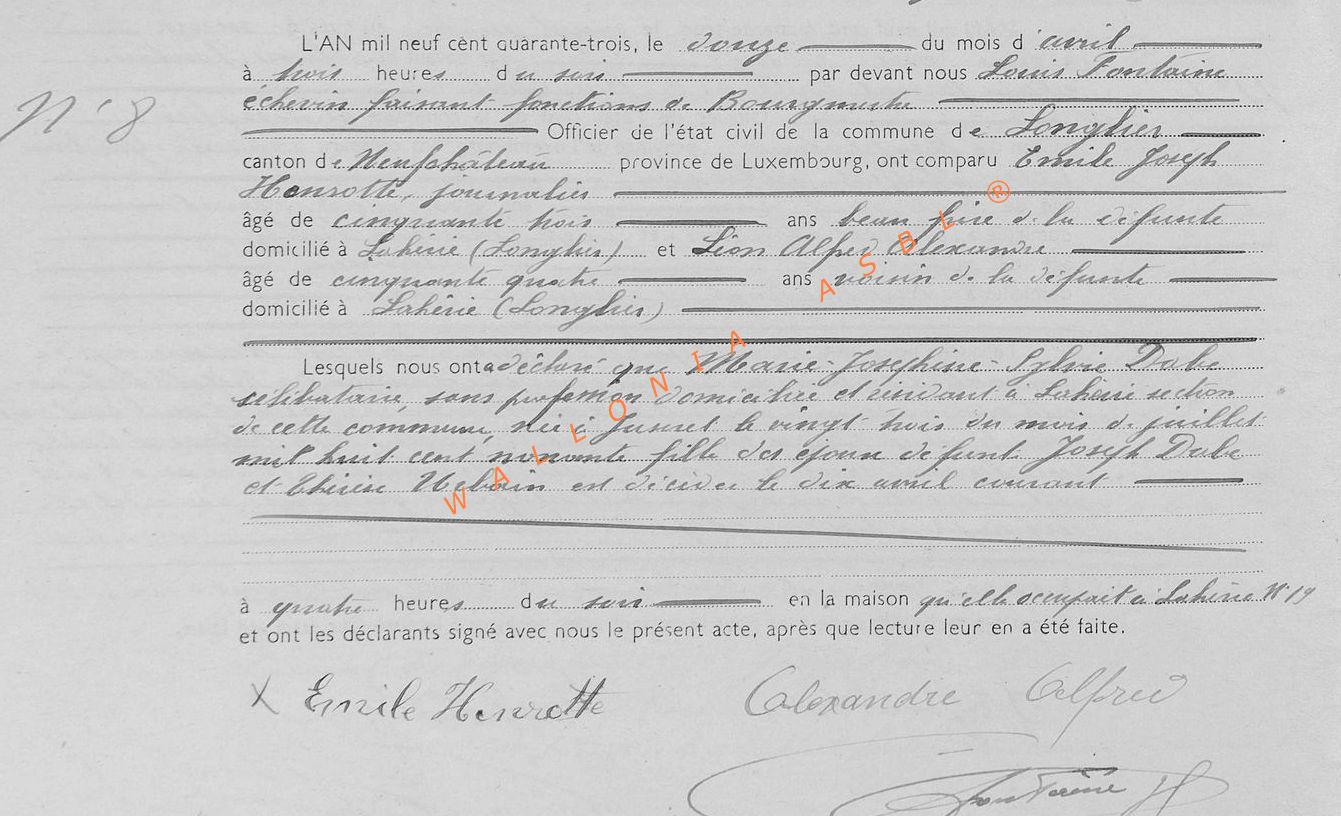 N° 8
L'AN mil neuf cent quarante-trois, le douze du mois d'avril
à trois heures du soir par devant nous Louis Fontaine
échevin faisant fonctions de Bourgmestre
Officier de l'état civil de la commune de Longlier
canton de Neufchâteau province de Luxembourg, ont comparu Emile Joseph
Henrotte, journalier
âgé de cinquante trois ans beau frère de la défunte
domicilié à Lahérie (Longlier) et Léon Alfred Alexandre
âgé de cinquante quatre ans voisin de la défunte
domicilié à Lahérie (Longlier)
Lesquels nous ont déclaré que Marie-Joséphine-Sylvie Dabe
célibataire, sans profession domiciliée et résidant à Lahérie section
de cette commune, née à Juseret le vingt trois du mois de juillet
mil huit cent nonante fille des époux défunt Joseph Dabe
et Thérèse est décédée le dix avril courant
à quatre heures du soir en la maison qu'elle occupait à Lahérie N°19
et ont les déclarants signé avec nous le présent acte, après que lecture leur en a été faite.
X Emile Henrotte Alexandre Alfred
Fontaine
WALLONIA ASBL ®